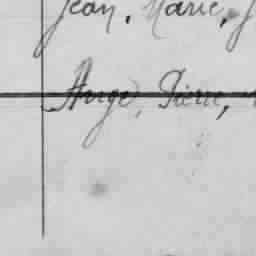 Jean, Marie,
Ange, Pierre,